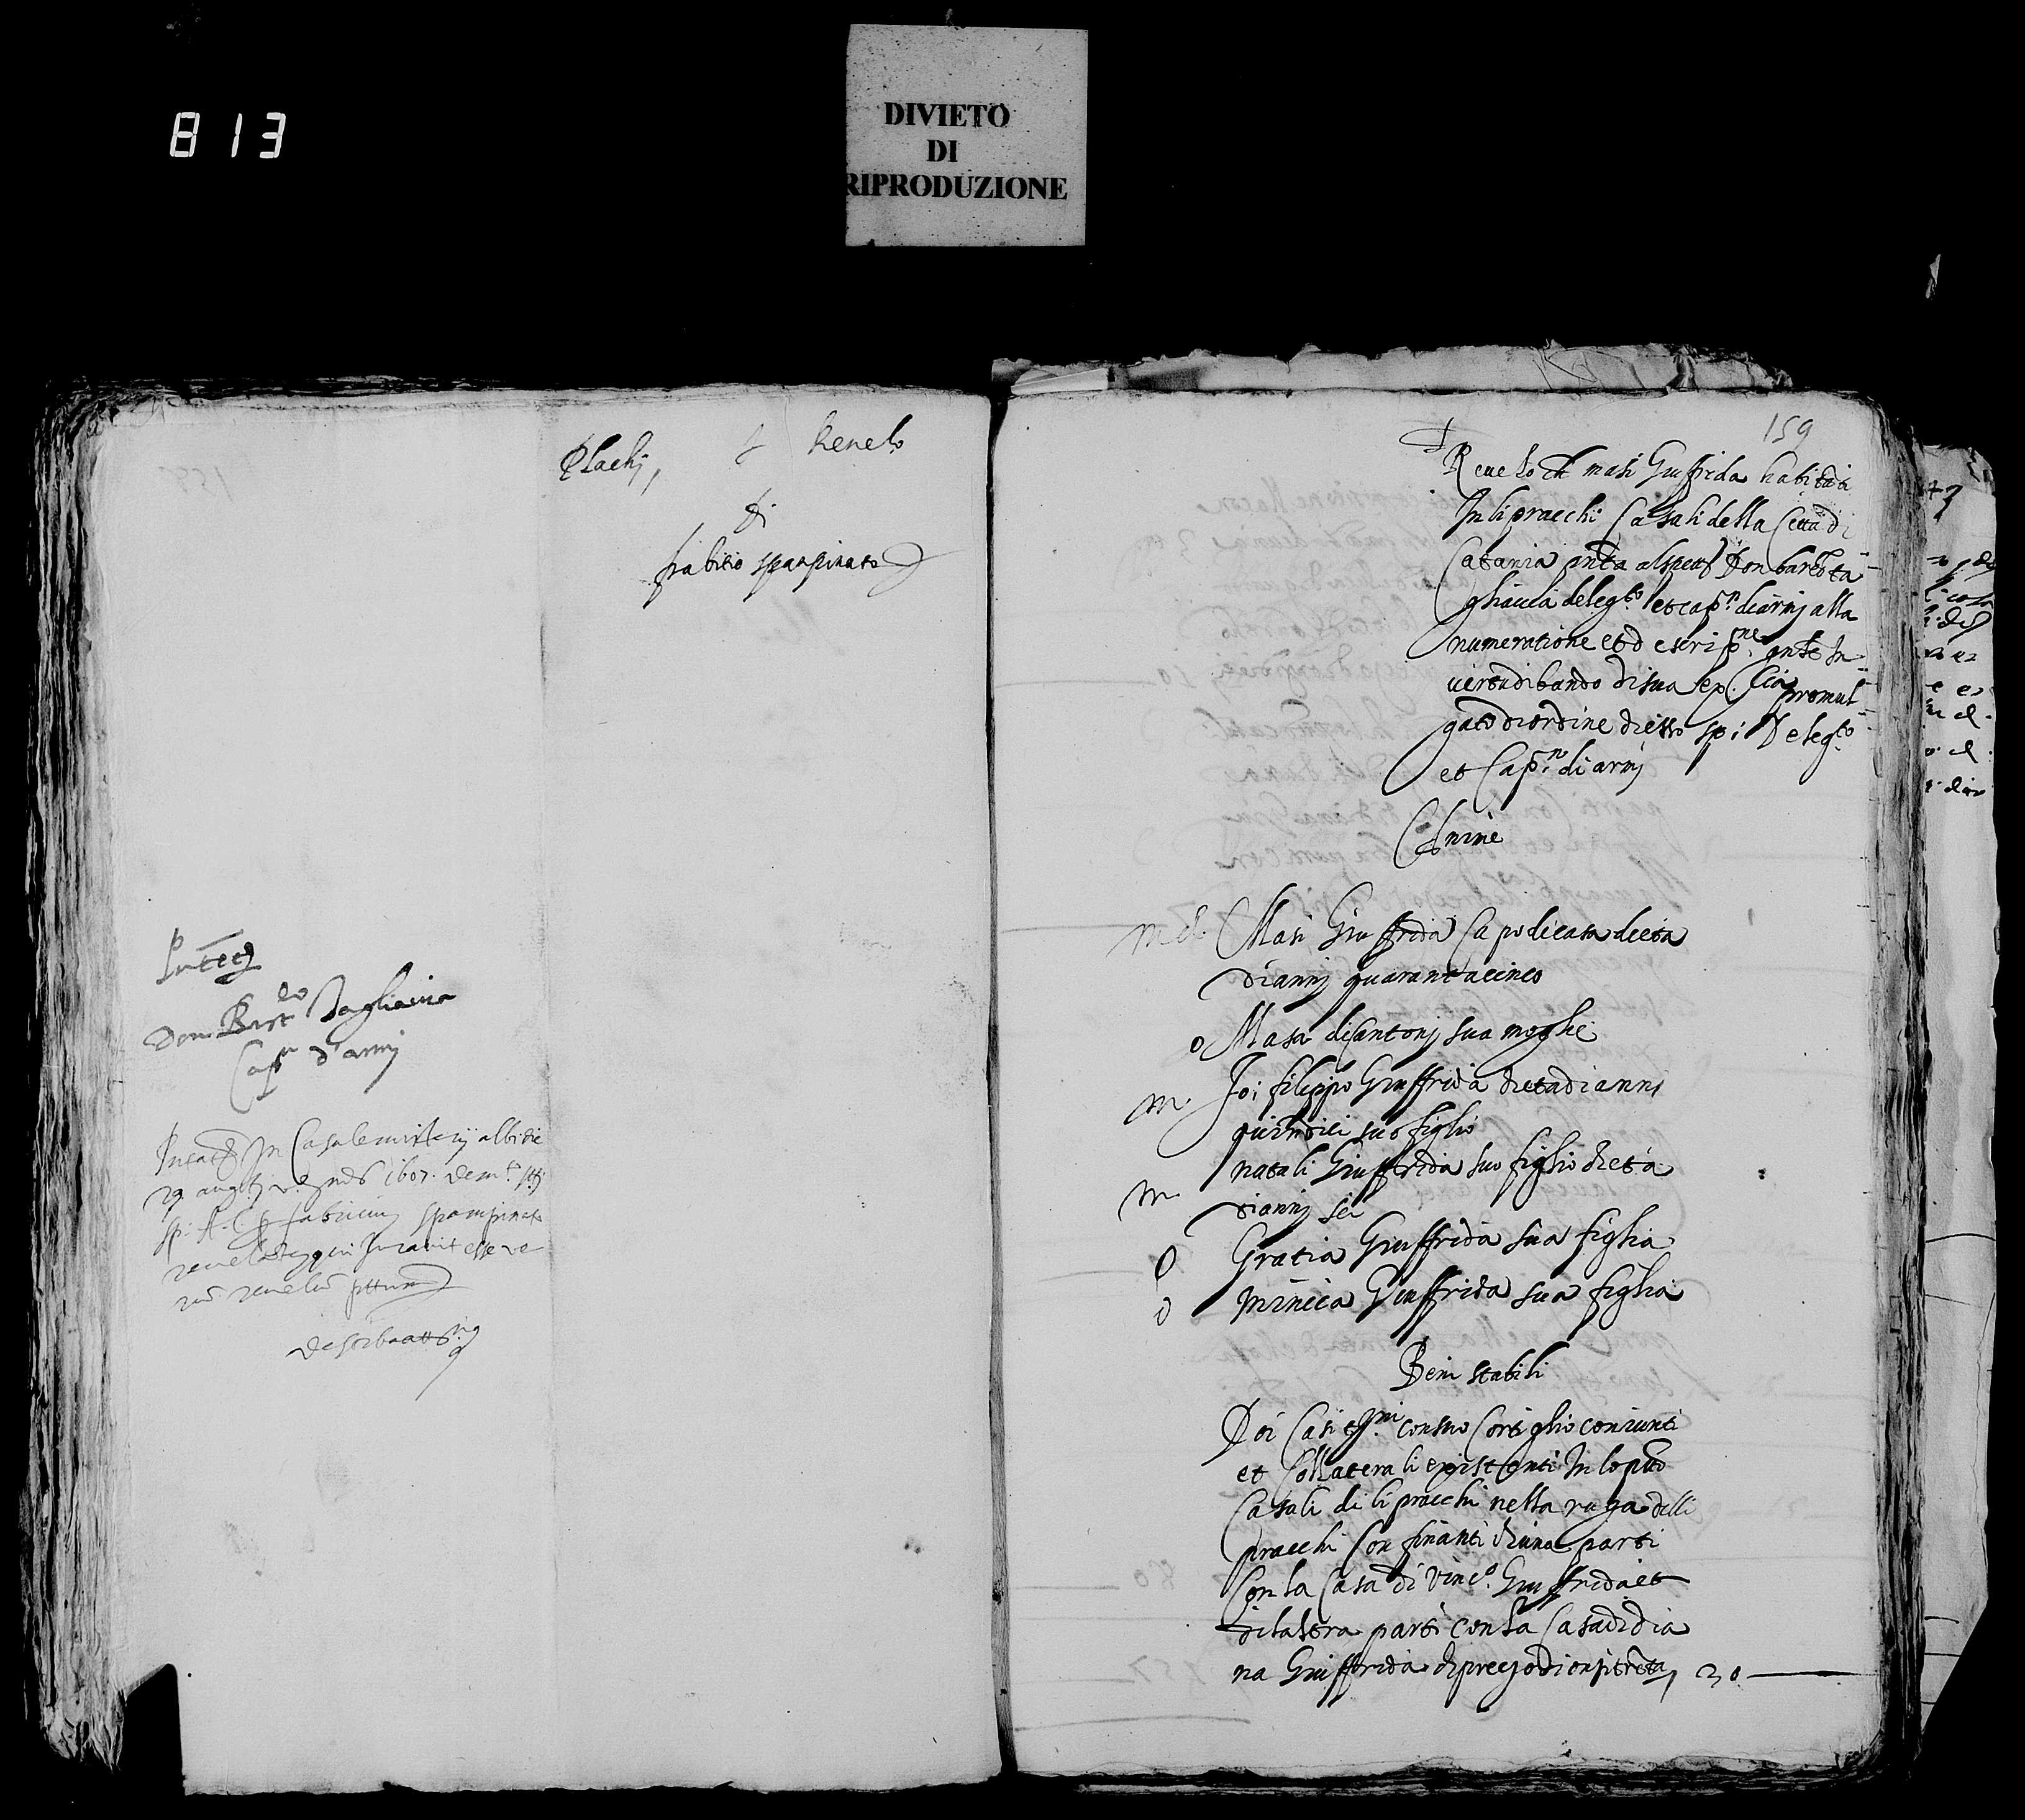 813
DIVIETO
DI
RIPRODUZIONE
Plachi, Revelo
di
frabitio spanpinato
Don Bart.do Tagliavia
Cap.n d'armi
In Casale
29 augti 1607
sp. fabricium spampinato
iuravit esse ve
rum revelum
159
Revelo di masi Giuffrida habitati
In li pracchi Casali della Citta di
Catania Don barto ta
ghiavia deleg.to et cap.n di armj alla
numeratione et descrip.ne In
virtu di bando di sua promul
gato di ordine di esso sp: Deleg.to
et Cap.n di armj
Anime
Masi Giuffrida Capo di casa di eta
di annj quarantacinco
o Masa di Santonj sua moghi
m. Joi filippo Giuffrida di eta di anni
quindici suo figlio
m. natali Giuffrida suo figlio di eta
di annj sei
o Gratia Giuffrida sua figlia
o minica Giuffrida sua figlia
Beni stabili
Doi Casi con suo Cortiglio coniunti
et Collaterali existenti In lo
Casali di li pracchi nella ruga delli
pracchi Confinanti di una parti
Con la Casa di Vinc.o Giuffrida et
di laltra parti con la Casa di dia
na Giuffrida di prezo di onzi trenta 30